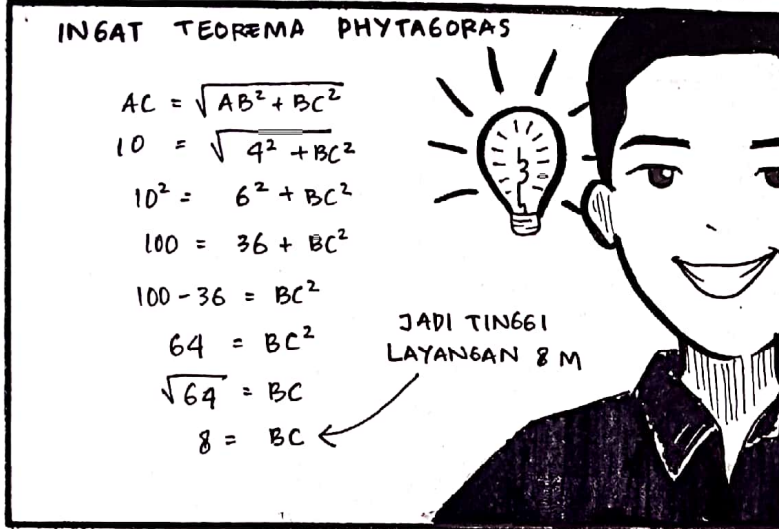 INGAT TEOREMA PHYTAGORAS
AC = √AB² + BC²
10 = √4² + BC²
10² = 6² + BC²
100 = 36 + BC²
100 - 36 = BC²
64 = BC²
√64 = BC
8 = BC
JADI TINGGI
LAYANGAN 8 M